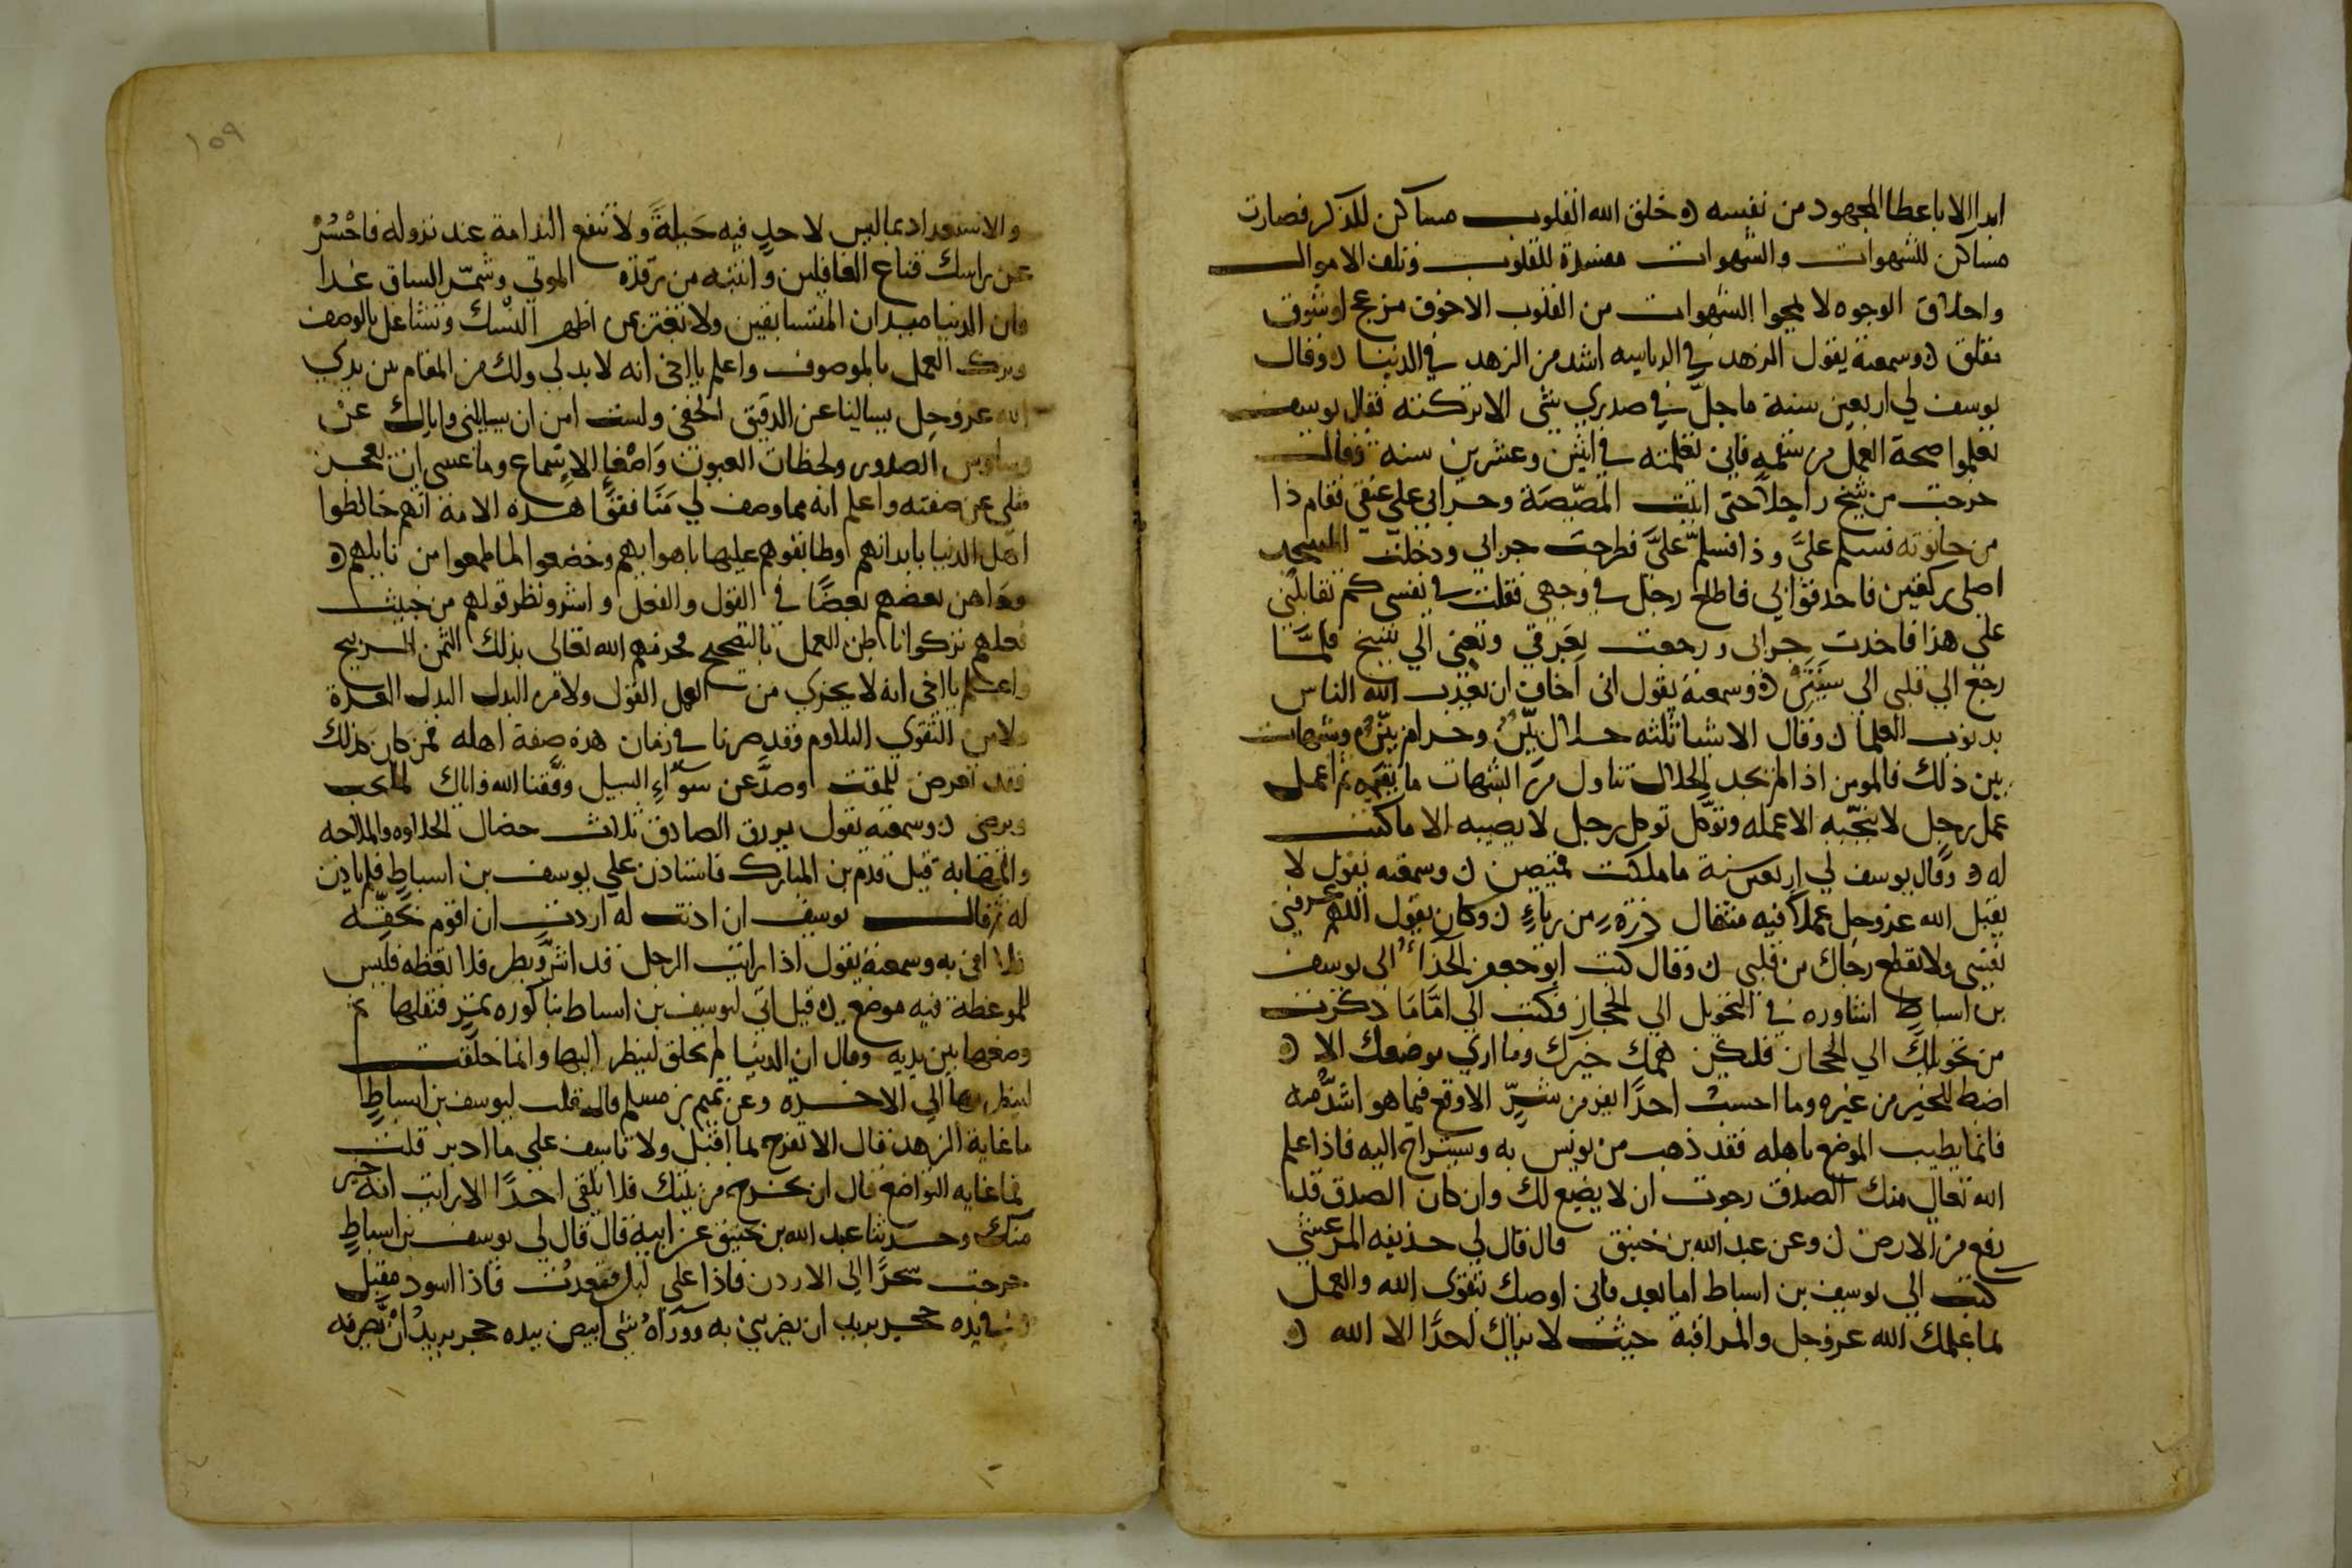 ابدا الا باعطا المجهود من نفسه ه خلق الله القلوب مساكن للذكر فصارت
مساكن للشهوات والشهوات مفسدة للقلوب وتلف الاموال
واخلاق الوجوه لا يمحوا الشهوات من القلوب الا خوف مزعج او شوق
مقلق ه وسمعته يقول الزهد في الرياسه اشد من الزهد في الدنيا ه وقال
يوسف لي اربعين سنة ما حل في صدري شي الا تركته فقال يوسف
تعلموا صحة العمل من سقمه فاني تعلمته في اثنين وعشرين سنه وقال
خرجت من شيخ راجلا حتى اتيت المصيصة وجرابي على عنقي فقام ذا
من حانوته فسلم علي وذا فسلم علي فطرحت جرابي ودخلت المسجد
اصلي ركعتين فاحدقوا بي فاطلع رجل في وجهي فقلت في نفسي كم تقابلني
على هذا فاخذت جرابي ورجعت بعرقي وتعبي الي شيخ فلما
رجع الي قلبي الي سنتين ه وسمعته يقول اني اخاف ان يعذب الله الناس
بذنوب العلما ه وقال الاشيا ثلثه حلال بيّن وحرام بيّن وشبهات
بين ذلك فالمومن اذا لم يجد الحلال تناول من الشبهات ما يقيمه ثم اعمل
عمل رجل لا ينجّيه الا عمله وتوكّل توكل رجل لا يصيبه الا ما كتب
له ه وقال يوسف لي اربعين سنة ما ملكت قميصين ه وسمعته يقول لا
يقبل الله عز وجل عملا فيه مثقال ذرة من رياءٍ ه وكان يقول اللهم عرفني
نفسي ولا تقطع رجاك من قلبي ه وقال كتب ابو جعفر الحذاء الى يوسف
بن اسباط اشاوره في التحويل الي الحجاز فكتب الي امّا ما ذكرت
من تحويلك الي الحجاز فليكن همك خيرك وما اري موضعك الا ه
اضبط للخير من غيره وما احسب احدًا يفر من شرّ الا وقع فيما هو اشدّ منه
فانما يطيب الموضع باهله فقد ذهب من يونس به ويستراح اليه فاذا علم
الله تعالى منك الصدق رجوت ان لا يضيع لك وان كان الصدق قد
رفع من الارض ه وعن عبد الله بن خبيق قال قال لي حذيفه المرعشي
كتب الي يوسف بن اسباط اما بعد فاني اوصيك بتقوى الله والعمل
بما علمك الله عز وجل والمراقبة حيث لا يراك احدًا الا الله ه
١٥٩
والاستعداد بما ليس لاحدٍ فيه حيلةً ولا تنفع الندامة عند نزوله فاحْسُرْ
عن راسك قناع الغافلين وانتبه من رقدة الموتي وشمّر الساق غدا
فان الدنيا ميدان المتسابقين ولا تغتر بمن اظهر النسك وتشاغل بالوصف
وترك العمل بالموصوف واعلم يا اخي انه لا بد لي ولك من المقام بين يدي
الله عز وجل يسالنا عن الدقيق الخفي ولست امن ان يسالني واياك عن
وساوس الصدور ولحظات العيون واصغاء الاستماع وما عسى ان يعجز
مثلي عن صفته واعلم انه مما وصف لي منافقوا هذه الامة انهم خالطوا
اهل الدنيا بابدانهم وطابقوهم عليها باهوايهم وخضعوا لما طمعوا من نايلهم ه
وداهن بعضهم بعضًا في القول والفعل واشر وبطر قولهم من خبيث
فعلهم تركوا باطن العمل بالتصحيح فحرمهم الله تعالى بذلك الثمن الربيح
واعلم يا اخي انه لا يجزي من العمل القول ولا من البذل العدة
ولا من التقوي التلاوم فقد صرنا في زمان هذه صفة اهله فمن كان كذلك
فقد تعرض للمقت وصدّ عن سواءِ السبيل وفقنا الله واياك لما يحب
ويرضى ه وسمعته يقول يرزق الصادق ثلاث خصال الحلاوه والملاحه
والمهابة قيل قدم بن المبارك فاستاذن علي يوسف بن اسباط فلم ياذن
له ثم قال يوسف ان اذنت له اردت ان اقوم بحقّه
فلا افي به وسمعته يقول اذا رايت الرجل قد اشر وبطر فلا تعظه فليس
للموعظة فيه موضع ه قيل اتي ليوسف بن اسباط بباكوره ثمر فقلبها ثم
وضعها بين يديه وقال ان الدنيا لم تخلق لينظر اليها وانما خلقت
لينظر بها الي الاخرة وعن تميم بن مسلم قال قلت ليوسف بن اسباطٍ
ما غاية الزهد قال الا تفرح بما اقبل ولا تاسف على ما ادبر قلت
فما غايه التواضع قال ان تخرج من بيتك فلا تلقى احدًا الا رايت انه خير
منك وحدثنا عبد الله بن خبيق عن ابيه قال قال لي يوسف بن اسباطٍ
خرجت سحرًا الى الاردن فاذا على فقعدت فاذا اسود مقبل
في يده حجر يريد ان يضربني به ووراه شي ابيض بيده حجر يريد ان يصرفه